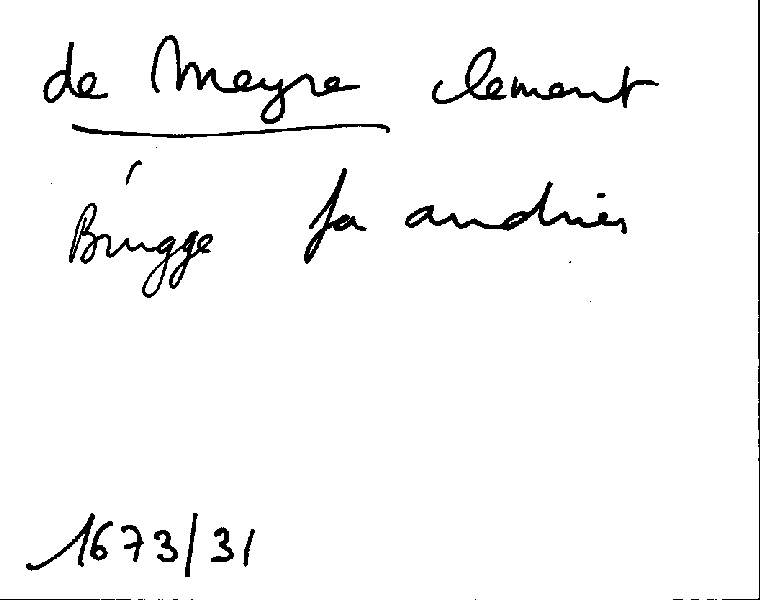 de Meyre clement
Brugge fa andries
1673/31